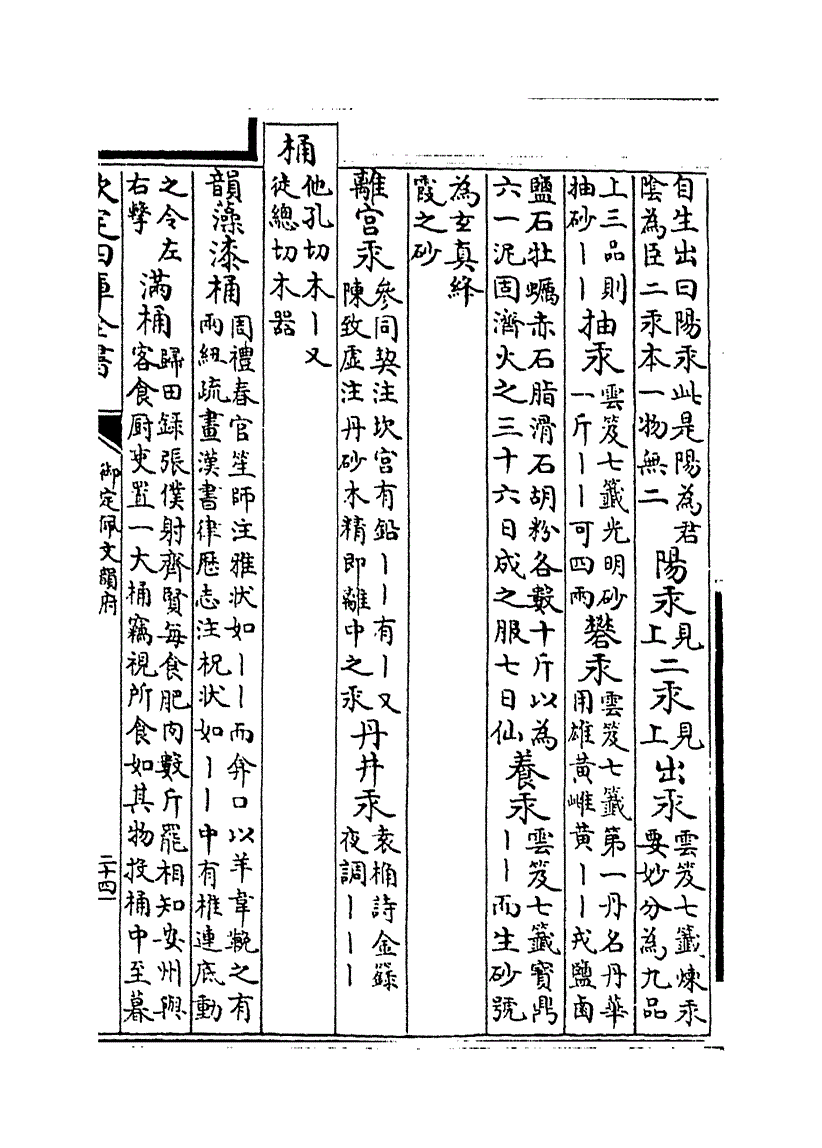 自生出曰陽汞此是陽為君
陰為臣二汞本一物無二
陽汞
見
上
二汞
見
上
出汞
雲笈七籤煉汞
要妙分為九品
上三品則
抽砂丨丨
抽汞
雲笈七籤光明砂
一斤丨丨可四兩
礬汞
雲笈七籤第一丹名丹華
用雄黃雌黃丨丨戎鹽鹵
鹽石牡蠣赤石脂滑石胡粉各數十斤以為
六一泥固濟火之三十六日成之服七日仙
養汞
雲笈七籤寳鼎
丨丨而生砂號
為玄真絳
霞之砂
離宫汞
參同契注坎宫有鉛丨丨有丨又
陳致虛注丹砂木精即離中之汞
丹井汞
袁桷詩金籙
夜調丨丨丨
桶
他孔切木丨又
徒總切木器
韻藻
漆桶
周禮春官笙師注雅狀如丨丨而弇口以羊韋鞔之有
兩紐疏畫漢書律歷志注柷狀如丨丨中有椎連底動
之令左
右擊
滿桶
歸田録張僕射齊賢每食肥肉數斤罷相知安州與
客食厨吏置一大桶竊視所食如其物投桶中至暮
欽定四庫全書
御定佩文韻府
二十四